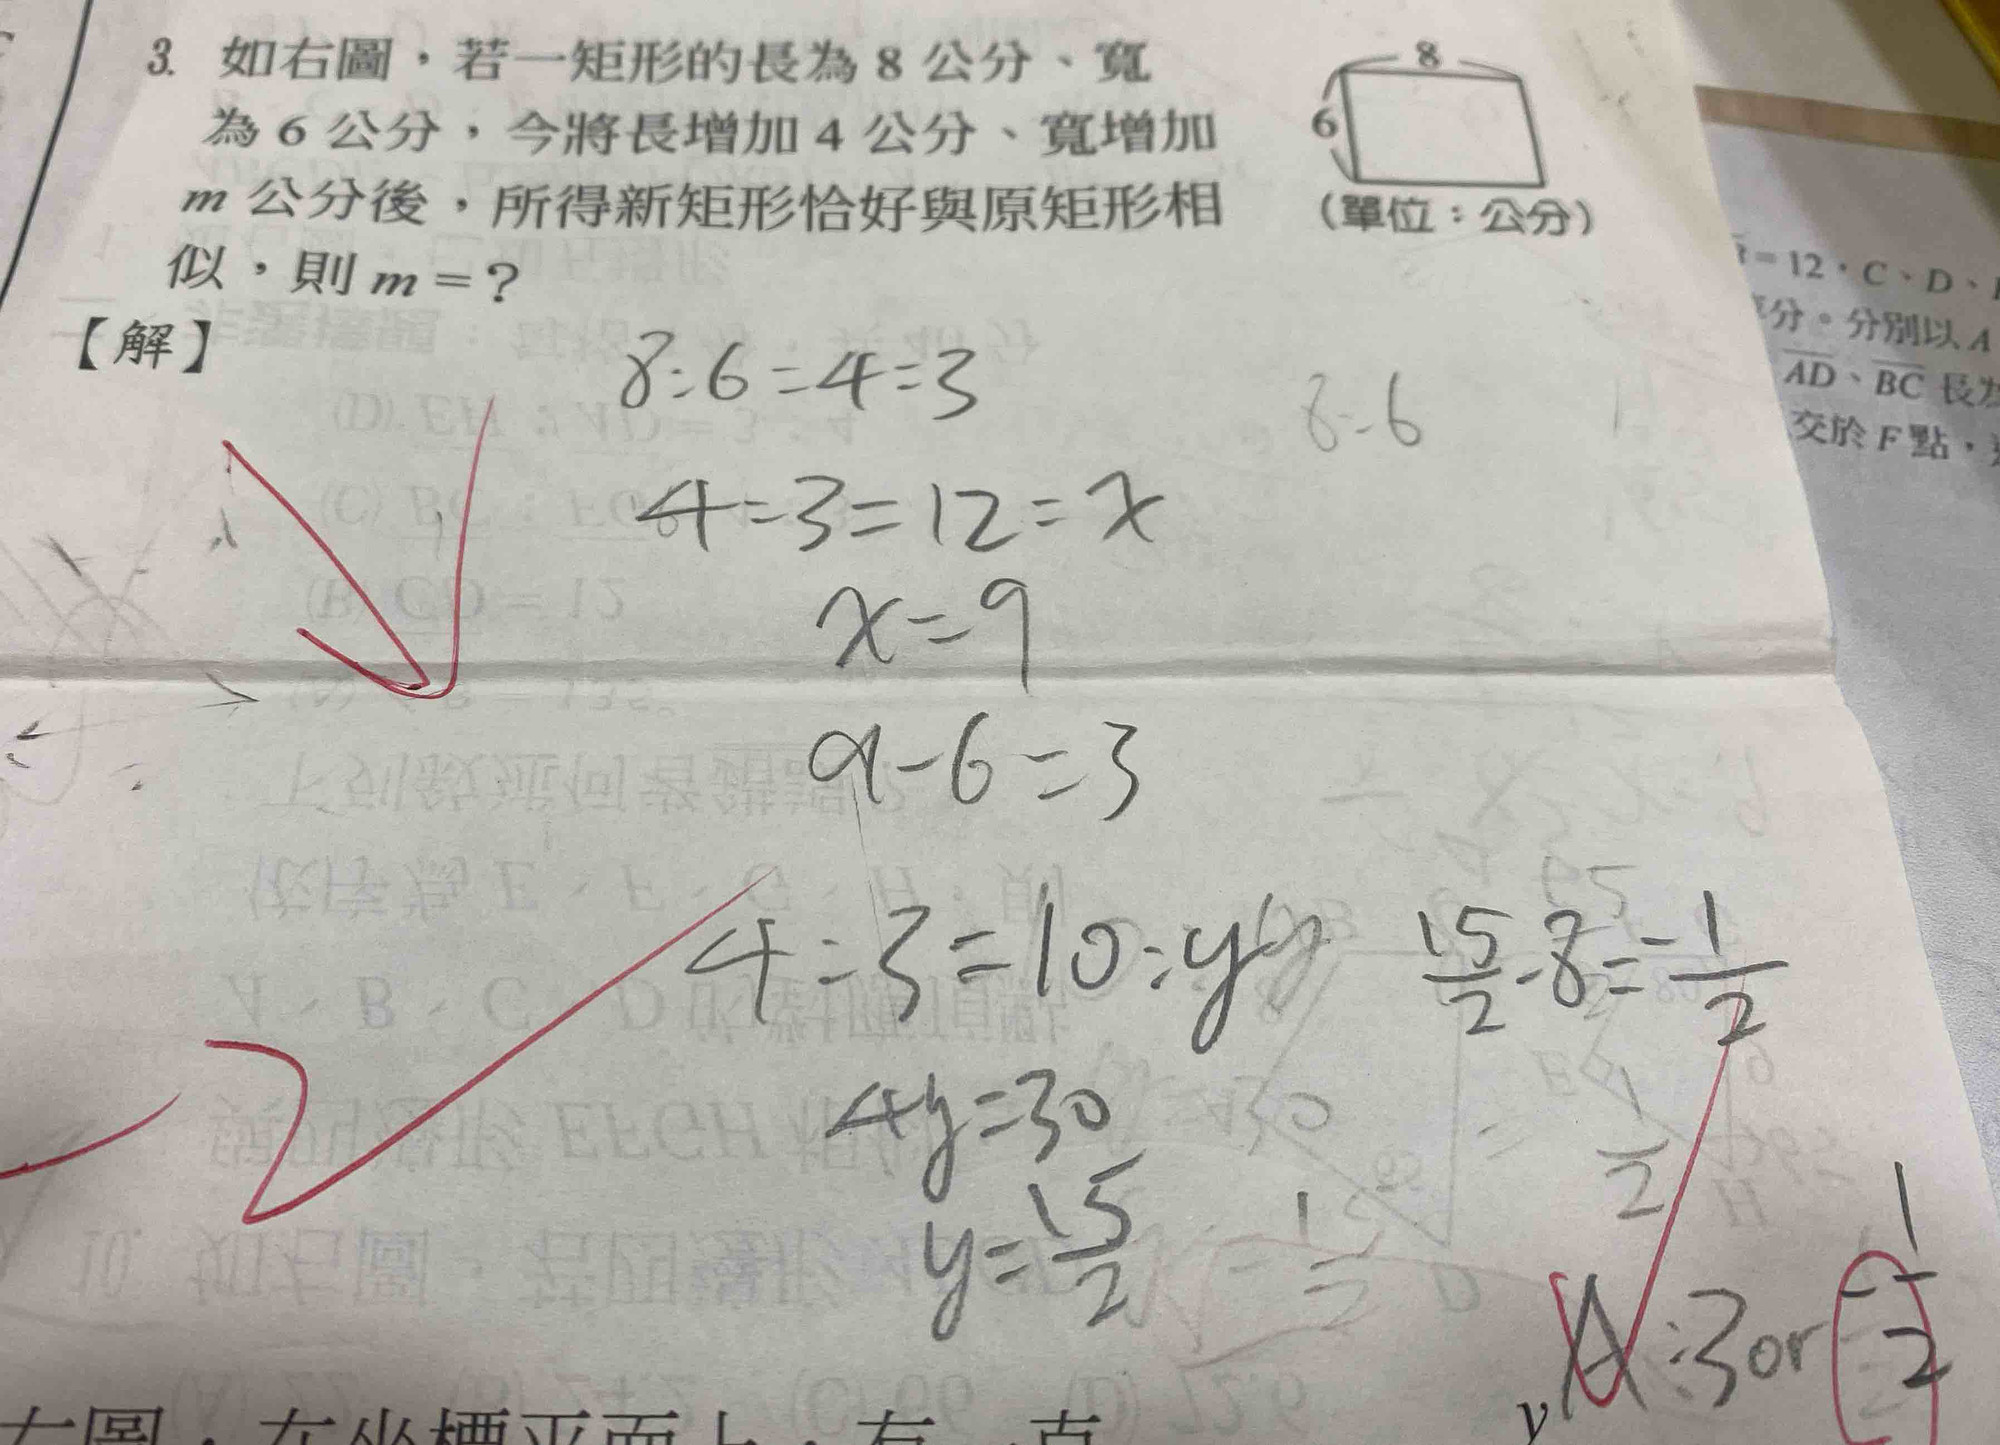 3. 如右圖，若一矩形的長為 8 公分、寬
為 6 公分，今將長增加 4 公分、寬增加
m 公分後，所得新矩形恰好與原矩形相
似，則 m = ?
8
6
（單位：公分）
【解】
8:6=4:3
8:6
4:3=12:x
x=9
9-6=3
4:3=10:y
4y=30
y=15/2
15/2-8=-1/2
1/2
A:3or(-1/2
=12，C、D、
分。分別以 A
AD、BC 長為
交於 F 點，
右圖，在坐標平面上，有一直
y